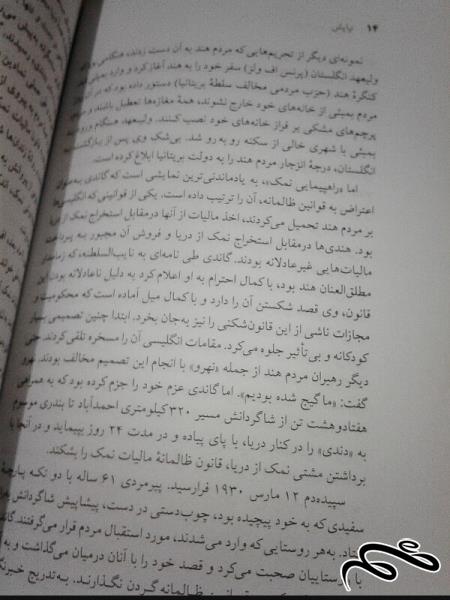 ۱۴ نیایش
نمونه‌ای دیگر از تحریم‌هایی که مردم هند به آن دست زدند، هنگامی
ولیعهد انگلستان (پرنس اف ولز) سفر خود را به هند آغاز کرد و وارد بمبئی
کنگرهٔ هند (حزب مردمی مخالف سلطهٔ بریتانیا) دستور داده بود که در آن
مردم بمبئی از خانه‌های خود خارج نشوند، همهٔ مغازه‌ها تعطیل باشند و
پرچم‌های مشکی بر فراز خانه‌های خود نصب کنند. ولیعهد هنگام ورود
بمبئی با شهری خالی از سکنه رو به رو شد. بی‌شک وی پس از بازگشت
انگلستان، درجهٔ انزجار مردم هند را به دولت بریتانیا ابلاغ کرده است.
اما «راهپیمایی نمک»، به یادماندنی‌ترین نمایشی است که گاندی به عنوان
اعتراض به قوانین ظالمانه، آن را ترتیب داده است. یکی از قوانینی که انگلیسی‌ها
بر مردم هند تحمیل می‌کردند، اخذ مالیات از آنها درمقابل استخراج نمک از دریا
بود. هندی‌ها درمقابل استخراج نمک از دریا و فروش آن مجبور به پرداخت
مالیات‌هایی غیرعادلانه بودند. گاندی طی نامه‌ای به نایب‌السلطنه، که زمامدار
مطلق‌العنان هند بود، با کمال احترام به او اعلام کرد به دلیل ناعادلانه بودن این
قانون، وی قصد شکستن آن را دارد و با کمال میل آماده است که محکومیت و
مجازات ناشی از این قانون‌شکنی را نیز به‌جان بخرد. ابتدا چنین تصمیمی بسیار
کودکانه و بی‌تأثیر جلوه می‌کرد. مقامات انگلیسی آن را مسخره تلقی کردند حتی
دیگر رهبران مردم هند از جمله «نهرو» با انجام این تصمیم مخالف بودند. نهرو
گفت: «ما گیج شده بودیم». اما گاندی عزم خود را جزم کرده بود که به همراهی
هفتادوهشت تن از شاگردانش مسیر ۳۲۰ کیلومتری احمدآباد تا بندری موسوم
به «دندی» را در کنار دریا، با پای پیاده و در مدت ۲۴ روز بپیماید و در آنجا با
برداشتن مشتی نمک از دریا، قانون ظالمانهٔ مالیات نمک را بشکند.
سپیده‌دم ۱۲ مارس ۱۹۳۰ فرارسید. پیرمردی ۶۱ ساله با دو تکه پارچهٔ
سفیدی که به خود پیچیده بود، چوب‌دستی در دست، پیشاپیش شاگردانش
به‌هر روستایی که وارد می‌شدند، مورد استقبال مردم قرار می‌گرفتند
با روستاییان صحبت می‌کرد و قصد خود را با آنان درمیان می‌گذاشت و
ظالمانه گردن نگذارند. به‌تدریج